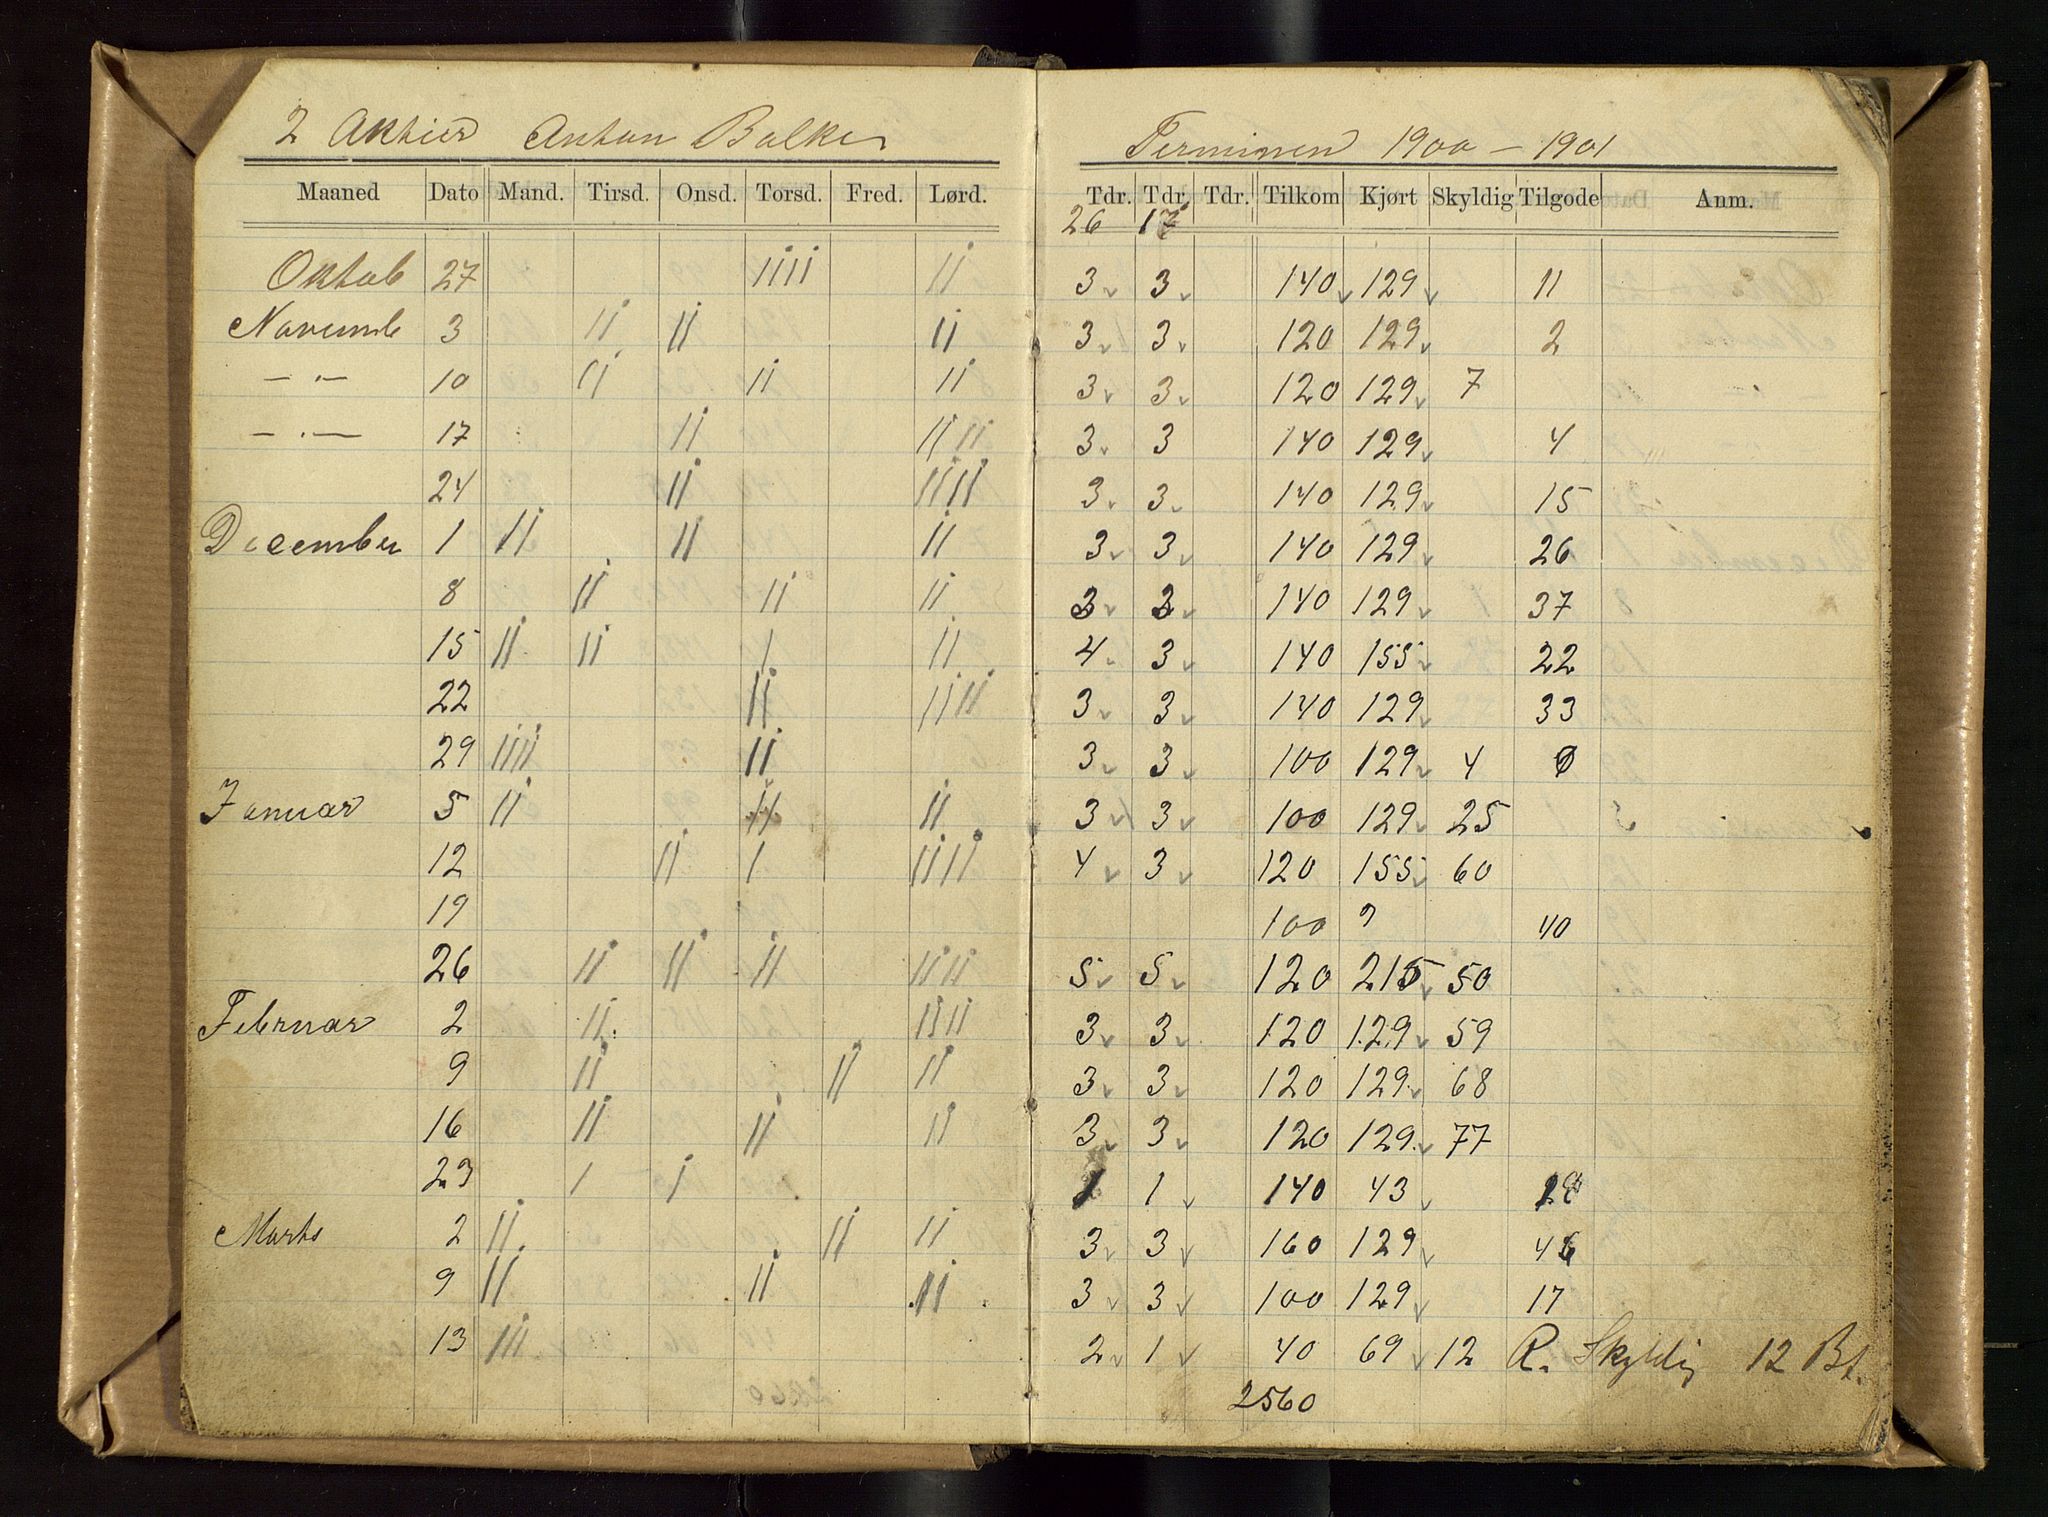 2 Aktier Anton Balke Terminen 1900 – 1901
Maaned Dato Mand. Tirsd. Onsd. Torsd. Fred. Lørd. Tdr. Tdr. Tdr. Tilkom Kjørt Skyldig Tilgode Anm.
26 17
Oktob 27 IIII II 3 3 140 129 11
Novemb 3 II II II 3 3 120 129 2
— " — 10 II II II 3 3 120 129 7
— " — 17 II II II 3 3 140 129 4
24 II IIII 3 3 140 129 15
December 1 II II II 3 3 140 129 26
8 II II II 3 3 140 129 37
15 II II I II 4 3 140 155 22
22 II IIII 3 3 140 129 33
29 IIII II 3 3 100 129 4 0
Januar 5 II II II 3 3 100 129 25
12 II I IIII 4 3 120 155 60
19 100 " 40
26 II II II IIII 5 5 120 215 50
Februar 2 II IIII 3 3 120 129 59
9 II II II 3 3 120 129 68
16 II II II 3 3 120 129 77
23 I I 1 1 140 43
Marts 2 II II II 3 3 160 129 46
9 II II II 3 3 100 129 17
13 III 2 1 40 69 12 R. Skyldig 12 Bt.
2560